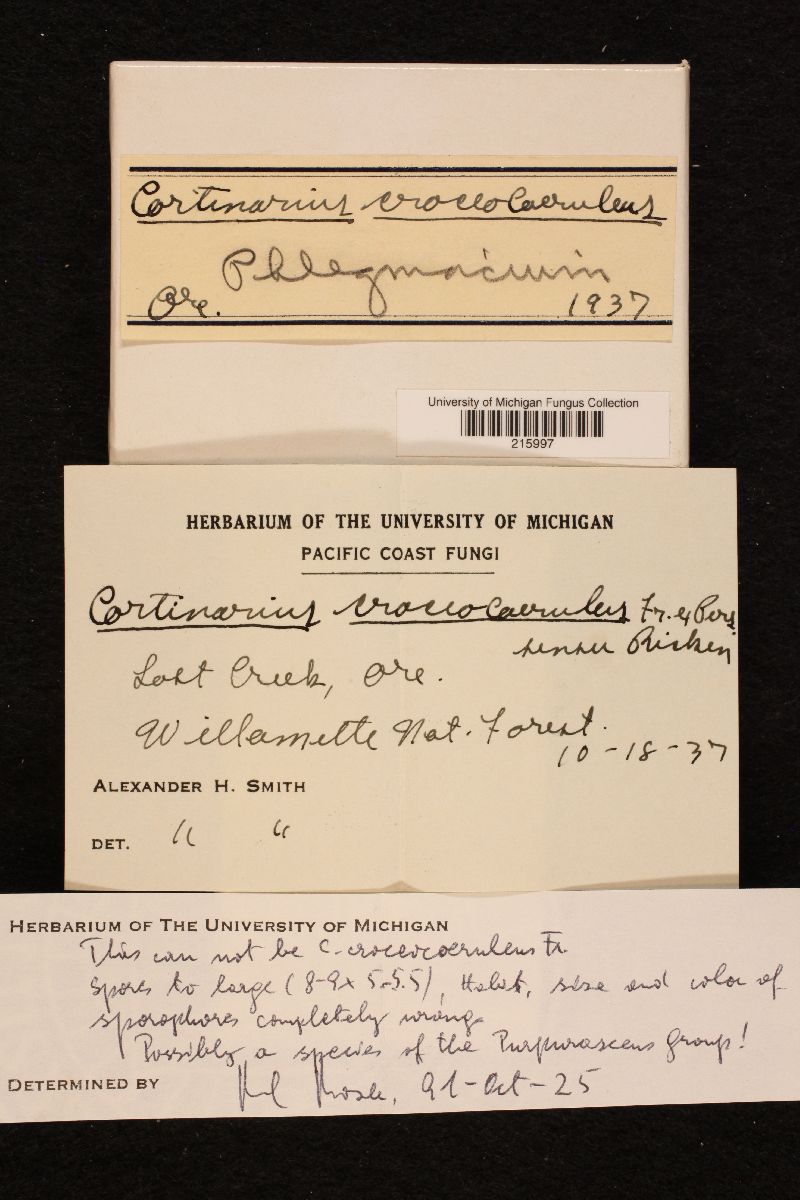 Cortinarius croceocaeruleus
Phlegmacium
Ore. 1937
University of Michigan Fungus Collection
215997
HERBARIUM OF THE UNIVERSITY OF MICHIGAN
PACIFIC COAST FUNGI
Cortinarius croceocaeruleus Fr. ex Pers
sensu Ricken
Lost Creek, Ore.
Willamette Nat. Forest.
10-18-37
ALEXANDER H. SMITH
DET. " "
HERBARIUM OF THE UNIVERSITY OF MICHIGAN
This can not be C. croceocoeruleus Fr.
Spores to large (8-9x5-5.5), Habit, size and color of
sporophores completely wrong.
Possibly a species of the Purpurascens group!
DETERMINED BY 91-Oct-25